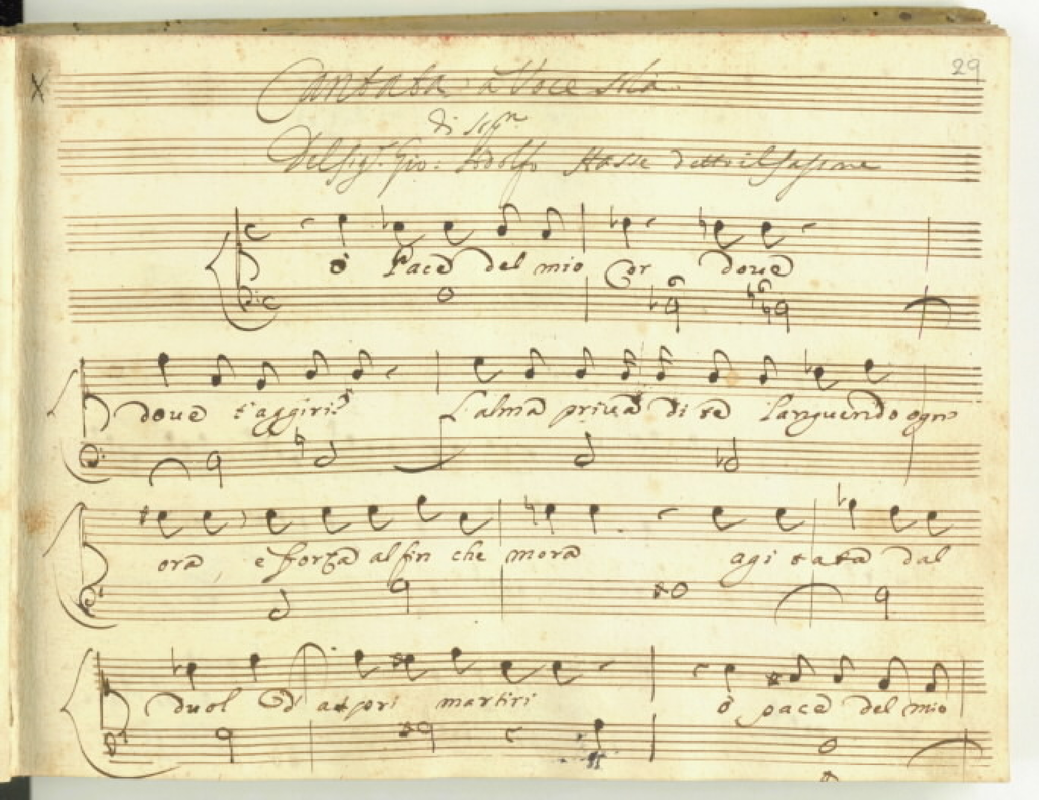 29
Cantata à Voce sola
di Sopr.
Del Sigr. Gio: Adolfo Hasse detto il Sassone
ò Pace del mio Cor doue
doue t'aggiri? L'alma priua di te languendo ogn
ora e forza al fin che mora agitata dal
duol Ed aspri martiri ò pace del mio